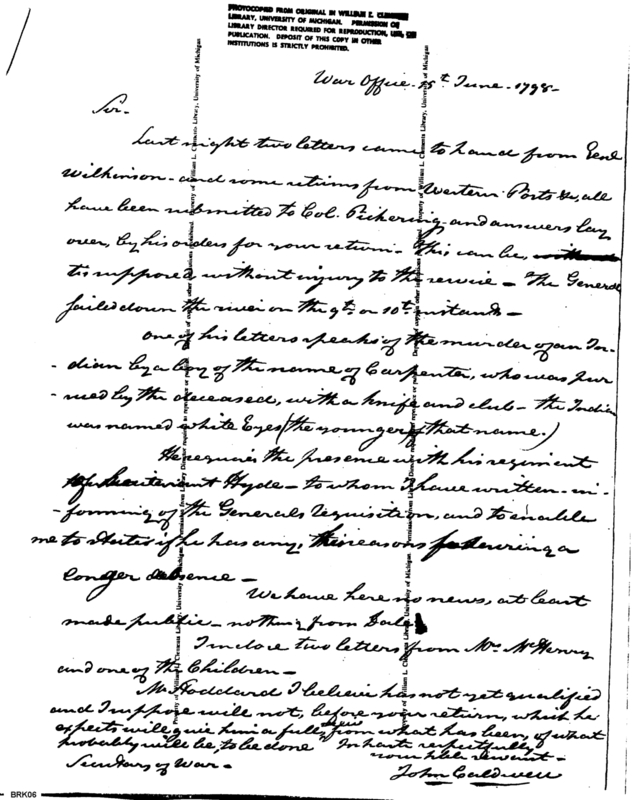 PHOTOCOPIED FROM ORIGINAL IN WILLIAM L. CLEMENTS
LIBRARY, UNIVERSITY OF MICHIGAN. PERMISSION OF
LIBRARY DIRECTOR REQUIRED FOR REPRODUCTION, USE, OR
PUBLICATION. DEPOSIT OF THIS COPY IN OTHER
INSTITUTIONS IS STRICTLY PROHIBITED.
War Office 15th June. 1798-
Sir-
Last night two letters came to hand from Genl
Wilkinson- and some returns from Western Posts &c, all
have been submitted to Col. Pickering, and answers lay
over, by his orders for your return- This can be,
tis supposed without injury to the service- The General
sailed down the river on the 9th or 10th instant-
One of his letters speaks of the murder of an In-
-dian by a boy of the name of Carpenter, who was pur
-sued by the deceased, with a knife and club- the Indian
was named white Eyes (the younger of that name.)
He requires the presence with his regiment
of Lieutenant Hyde- to whom I have written- in-
-forming of the Generals requisition, and to enable
me to state if he has any, the reasons for desiring a
longer absence-
We have here no news, at least
made public- nothing from Dale
I inclose two letters from Mrs McHenry
and one of the Children-
Mr Stoddard I believe has not yet qualified
and I suppose will not, before your return, which he
expects will give him a full view from what has been, of what
probably will be, to be done
In haste respectfully
your hble servant-
Secretary of War-
John Caldwell
BRK06